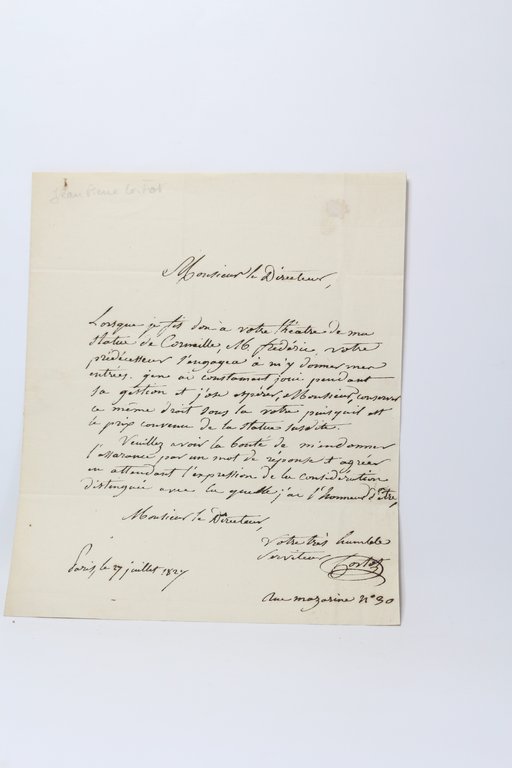 Jean Pierre Cortot
Monsieur le Directeur,
Lorsque je fis don à votre théatre de ma
statue de Corneille, M frédéric, votre
prédécesseur s'engagea à m'y donner mes
entrées. j'en ai constament joui pendant
sa gestion et j'ose espérer, Monsieur, conserver
ce même droit sous la votre puisquil est
le prix convenu de la statue susdite.
Veuillez avoir la bonté de m'en donner
l'assurance par un mot de réponse et agréer
en attendant l'expression de la considération
distinguée avec la quelle j'ai l'honneur d'être,
Monsieur le Directeur,
Votre très humble
Serviteur Cortot
Paris, le 27 juillet 1827
Rue mazarine n° 30